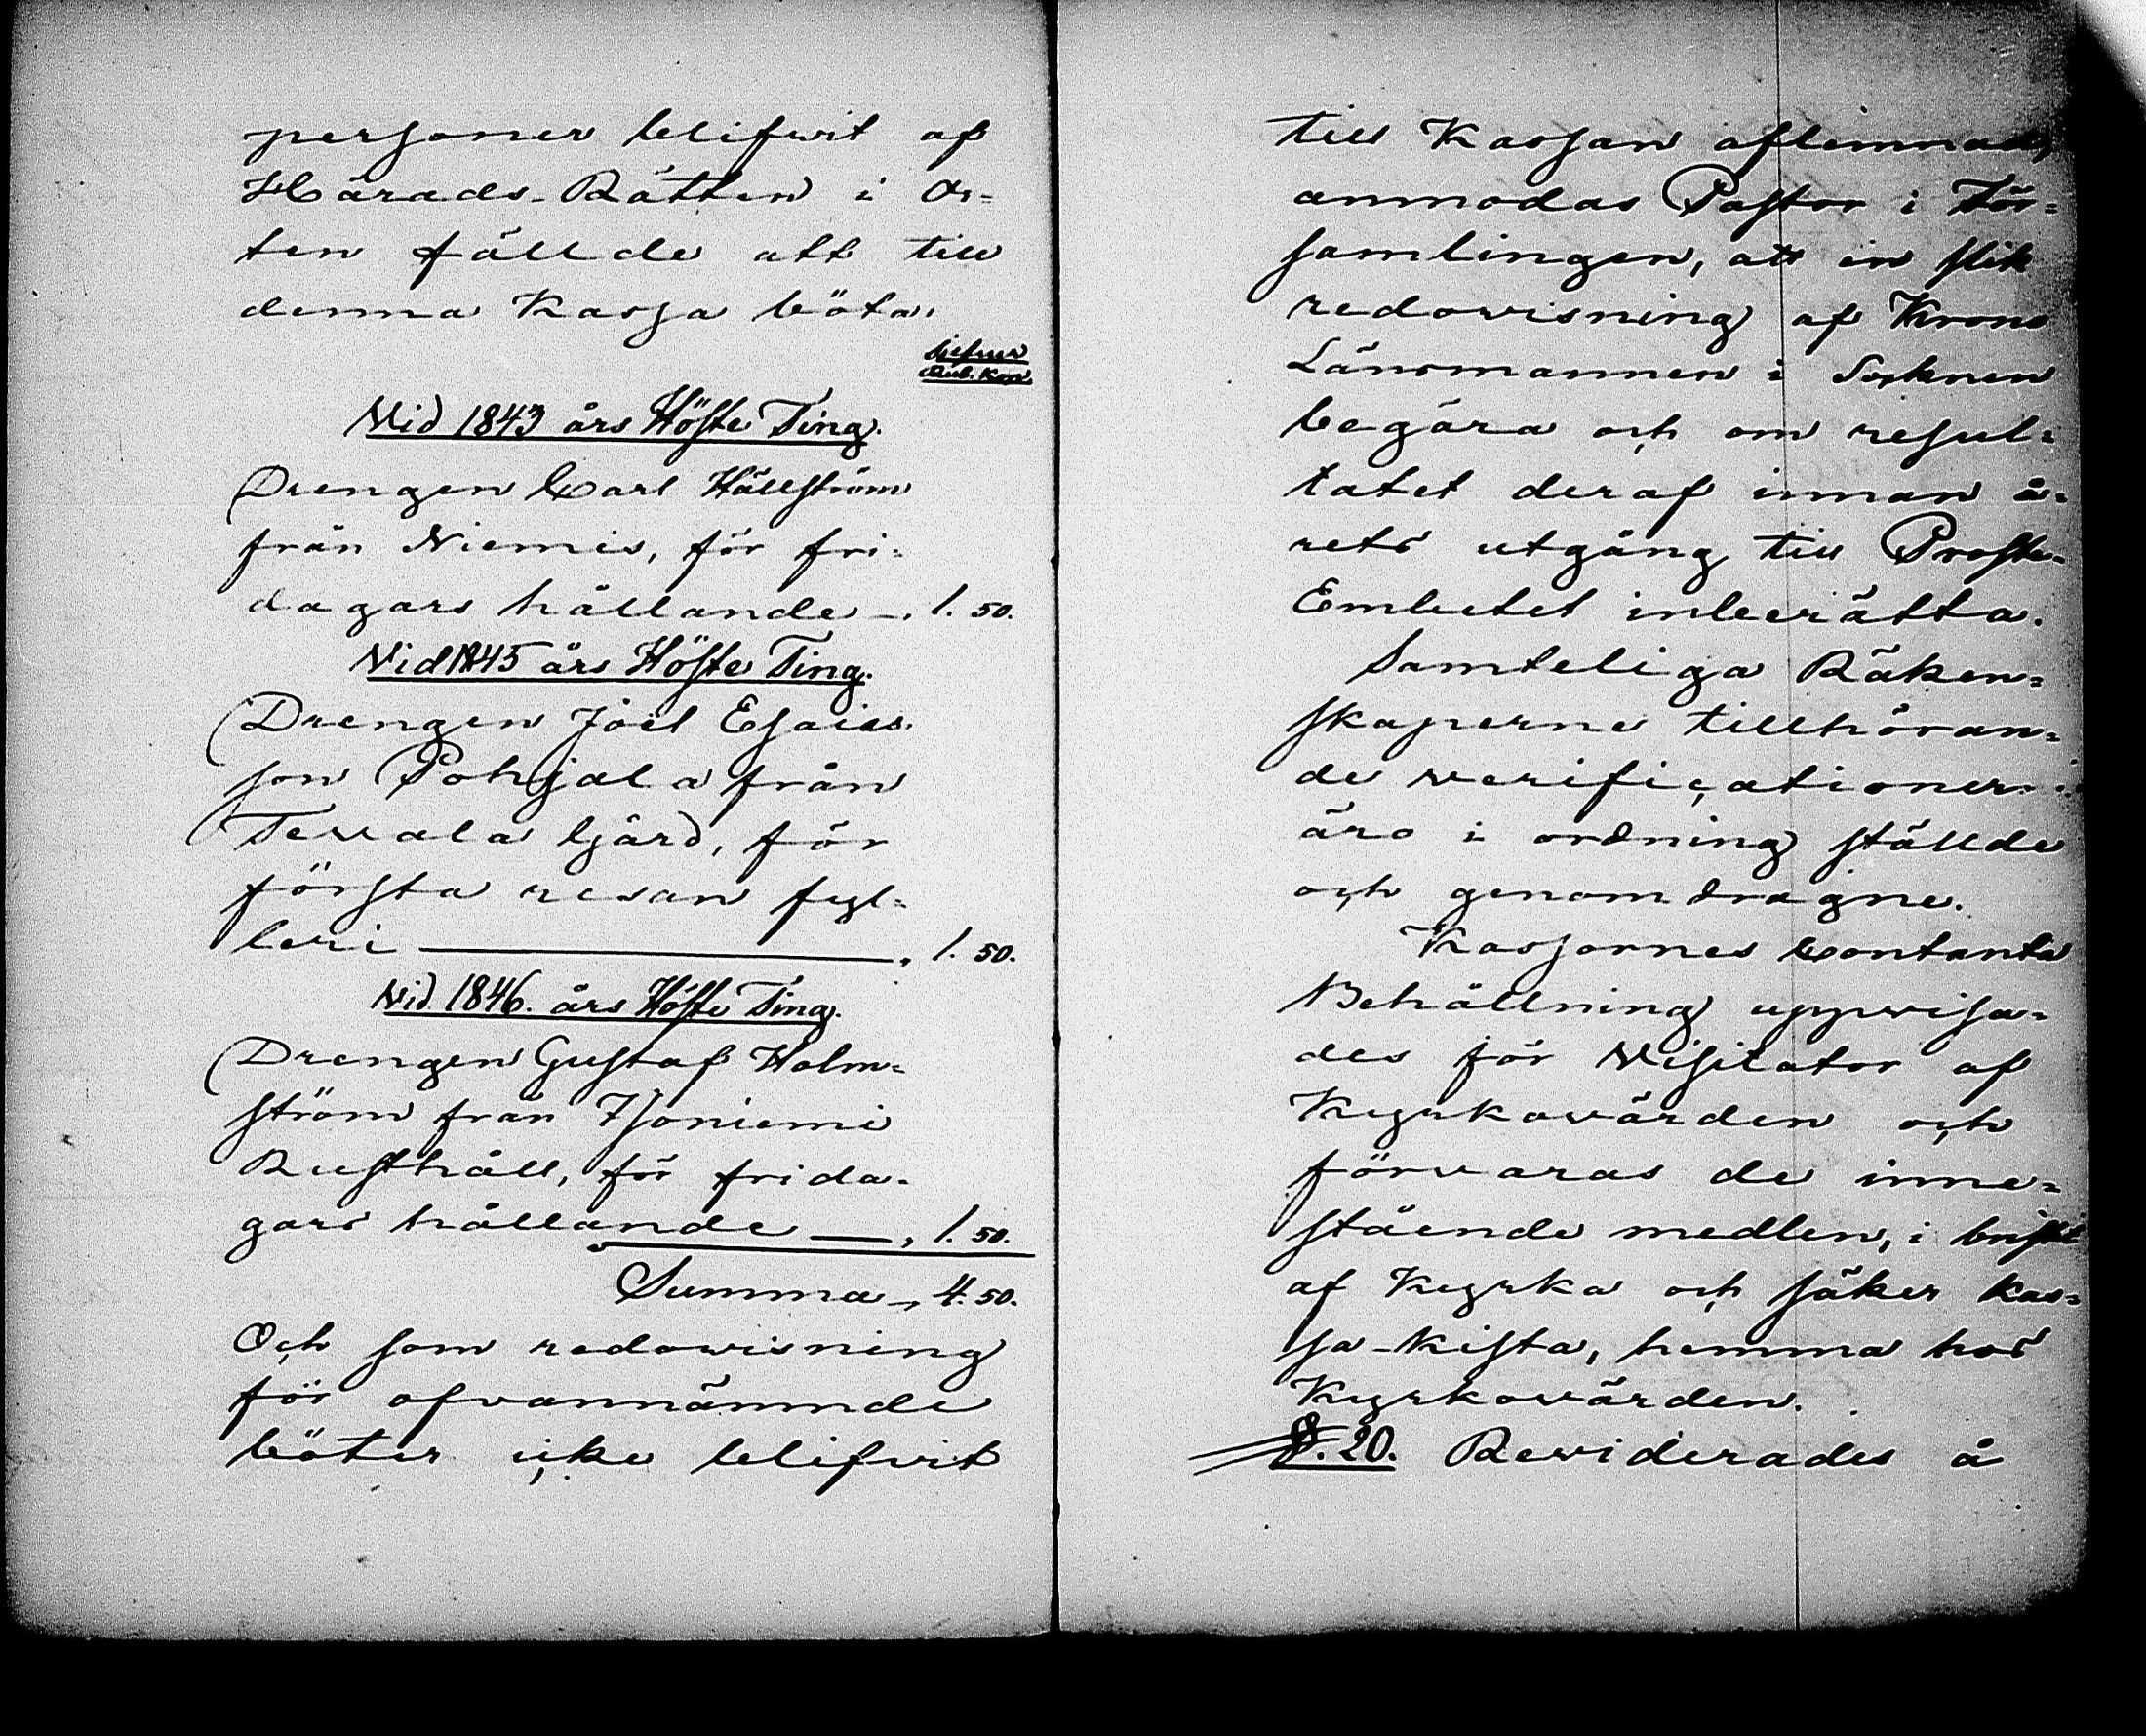 personer blifwit af
Härads-Rätten i Or-
ten fällde att till
denna Kassa böta.
Silfver
Rub. Kop.
Vid 1843 års Höste Ting.
Drengen Carl Hällström
från Niemis, för fri-
dagars hållande —, 1. 50.
Vid 1845 års Höste Ting.
Drengen Joel Esaias-
son Pohjala från
Tervala Gård, för
första resan fyl-
leri —, 1. 50.
Vid 1846. års Höste Ting.
Drengen Gustaf Holm-
ström från Isoniemi
Rusthåll, för frida-
gars hållande —, 1. 50.
Summa —, 4. 50.
Och som redowisning
för ofvannämnde
böter icke blifvit
till Kassan aflemnad,
anmodas Pastor i För-
samlingen, att en slik
redowisning af Krono
Länsmannen i Socknen
begära och om resul-
tatet deraf innan å-
rets utgång till Proste-
Embetet inberätta.
Samteliga Räken-
skaperne tillhöran-
de verificationer
äro i ordning ställde
och genomdragne.
Kassornes Contanta
Behållning uppwisa-
des för Visitator af
Kyrkowärden och
förvaras de inne-
stående medlen, i brist
af Kyrka och säker kas-
sa-kista, hemma hos
Kyrkowärden.
§. 20. Reviderades å